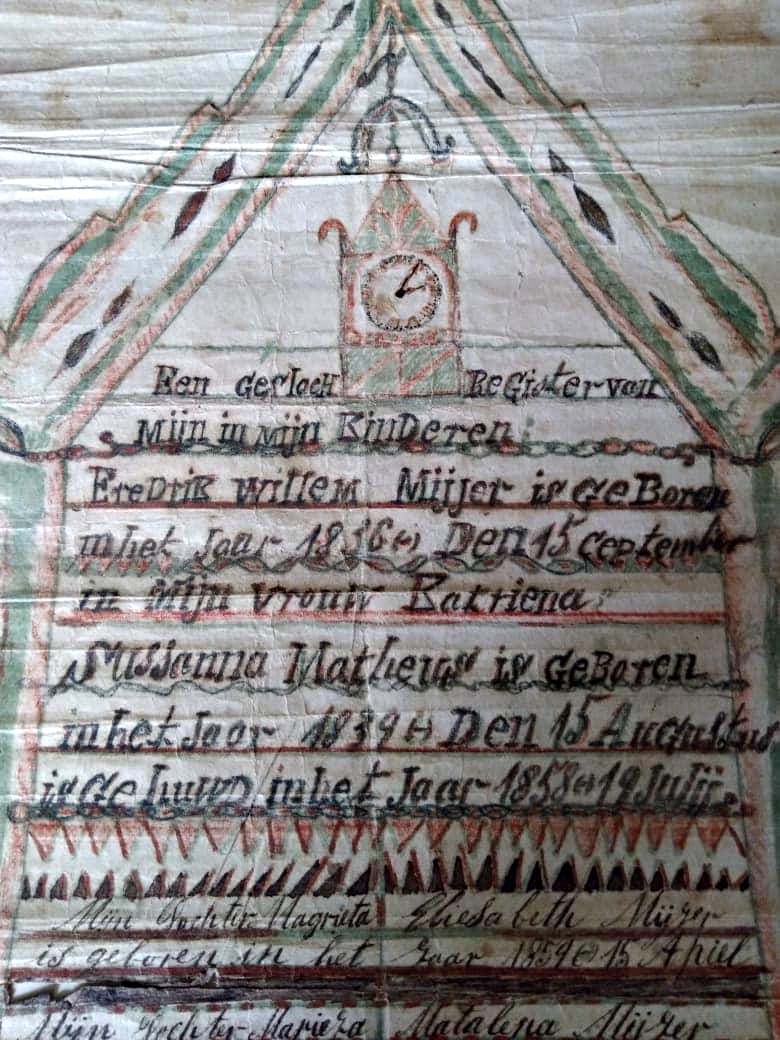 Een geslacH Register van
Mijn in Mijn KinDeren
FreDrik Willem Mijjer is geBoren
in het Jaar 1836 Den 15 September
in Mijn Vrouw Katriena
Sussanna Matheus is geBoren
in het Jaar 1839 Den 15 Augustus
is getruwD in het Jaar 1858 19 Julij
Mijn Dochter Magrieta Eliesabeth Mijzer
is geboren in het Jaar 1859 15 Apiel
Mijn Dochter Marieza Matalena Mijzer